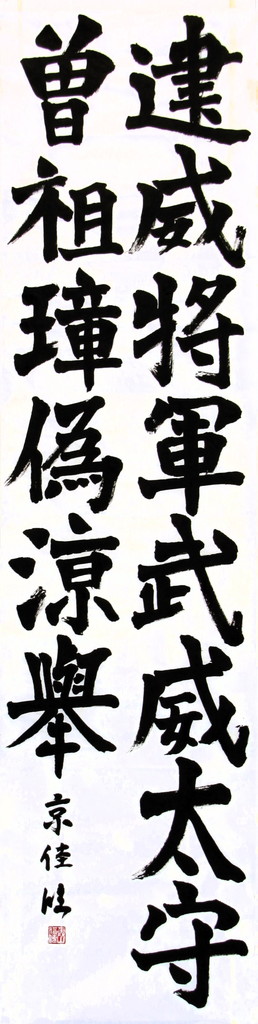 建威將軍武威太守
曽祖璋偽涼舉
京佳臨